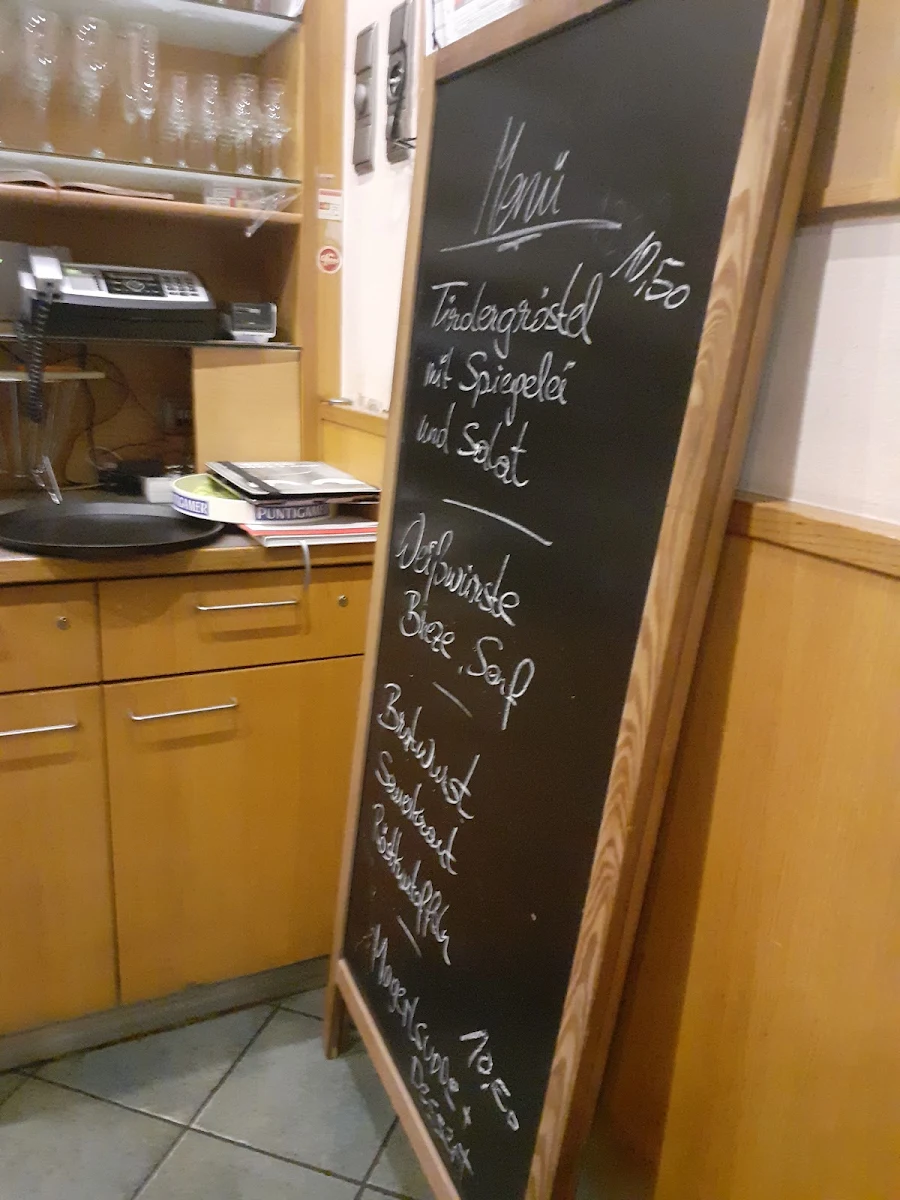 Menü
10,50
Tirolergröstel
mit Spiegelei
und Salat
Weißwürste
Breze, Senf
Bratwurst
Sauerkraut
Röstkartoffeln
10,50
Dessert
PUNTIGAMER